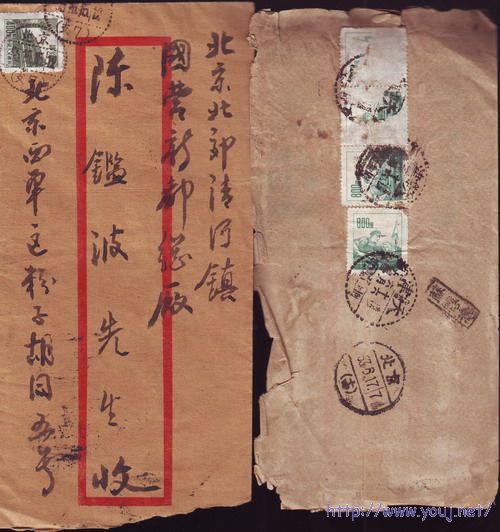 北京北郊清河鎮
國营新都總厰
陈鑑波先生收
北京西单区粉子胡同五号
800
800
北京
53.6.17.17
http://www.youj.net/